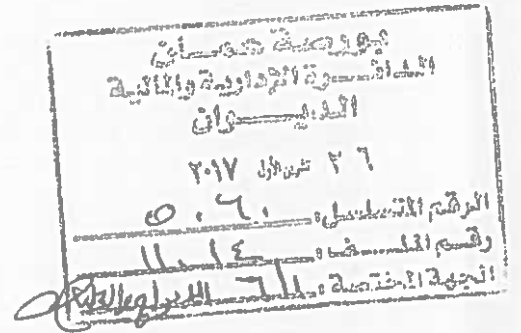 بورصة عمان
الدائرة الإدارية والمالية
الديوان
٢٦ تشرين الأول ٢٠١٧
الرقم المتسلسل: ٥٠٦٠
رقم الملف: ١١٠١٤
الجهة المختصة: